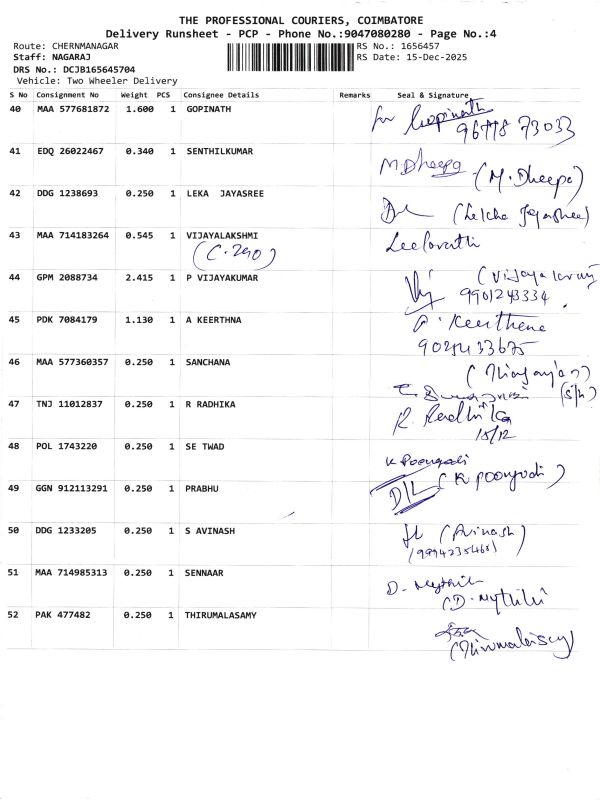 THE PROFESSIONAL COURIERS, COIMBATORE
Delivery Runsheet - PCP - Phone No.:9047080280 - Page No.:4
Route: CHERNMANAGAR RS No.: 1656457
Staff: NAGARAJ RS Date: 15-Dec-2025
DRS No.: DCJB165645704
Vehicle: Two Wheeler Delivery
S No Consignment No Weight PCS Consignee Details Remarks Seal & Signature
40 MAA 577681872 1.600 1 GOPINATH for Gopinath
73033
41 EDQ 26022467 0.340 1 SENTHILKUMAR M.Dheepa (M.Dheepa)
42 DDG 1238693 0.250 1 LEKA JAYASREE
43 MAA 714183264 0.545 1 VIJAYALAKSHMI Leelavathi
(C.290)
44 GPM 2088734 2.415 1 P VIJAYAKUMAR
9901243334
45 PDK 7084179 1.130 1 A KEERTHNA A. Keerthene
46 MAA 577360357 0.250 1 SANCHANA
47 TNJ 11012837 0.250 1 R RADHIKA R. Radhika
15/12
48 POL 1743220 0.250 1 SE TWAD K Poongodi
49 GGN 912113291 0.250 1 PRABHU D/L (K poongodi)
50 DDG 1233205 0.250 1 S AVINASH (Avinash)
51 MAA 714985313 0.250 1 SENNAAR D. Mythili
(D. Mythili
52 PAK 477482 0.250 1 THIRUMALASAMY